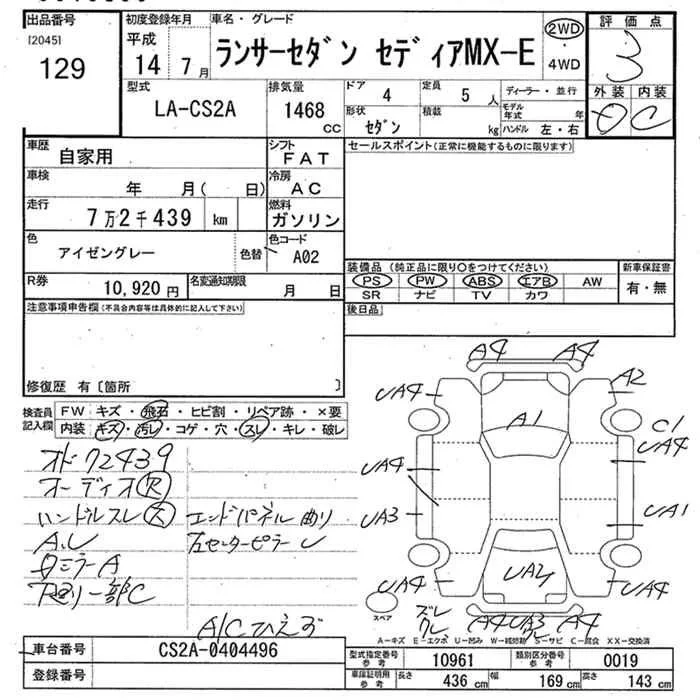 出品番号
[2045]
129
初度登録年月
平成
14年 7月
車名・グレード
ランサーセダン セディアMX-E
2WD
・
4WD
評価点
3
外装 内装
D C
型式
LA-CS2A
排気量
1468
CC
ドア
4
定員
5 人
形状
セダン
積載
kg
ディーラー・並行
モデル年式 年
ハンドル 左・右
車歴
自家用
シフト
FAT
車検
年 月( 日)
冷房
AC
走行
7万2千439 km
燃料
ガソリン
色
アイゼングレー
色替
色コード
A02
R券
10,920円
名変通知期限
月 日
セールスポイント(正常に機能するものに限ります)
装備品(純正品に限り○をつけてください)
PS PW ABS エアB AW
SR ナビ TV カワ
新車保証書
有・無
注意事項申告欄(不具合内容等は具体的に記入して下さい)
後日品
修復歴 有〔箇所 〕
検査員
記入欄
FW キズ・飛石・ヒビ割・リペア跡・×要
内装 キズ・汚レ・コゲ・穴・スレ・キレ・破レ
オド72439
オーディオ欠
ハンドルスレ大 エンドパネル曲り
A.U 左センターピラーU
ミラーA
下廻り一部C
A/Cひえず
A4 A4
UA4 A2
A1
C1
UA4 UA4
UA3 UA1
UA2
UA4 UA4
スペア
ズレ
ワレ
A4 UA3 A4
ワレ
A-キズ E-エクボ U-凹み W-補修跡 S-サビ C-腐食 XX-交換済
車台番号
CS2A-0404496
登録番号
型式指定番号
参考
10961
類別区分番号
参考
0019
車庫証明用
参考
長さ 436 cm 幅 169 cm 高さ 143 cm